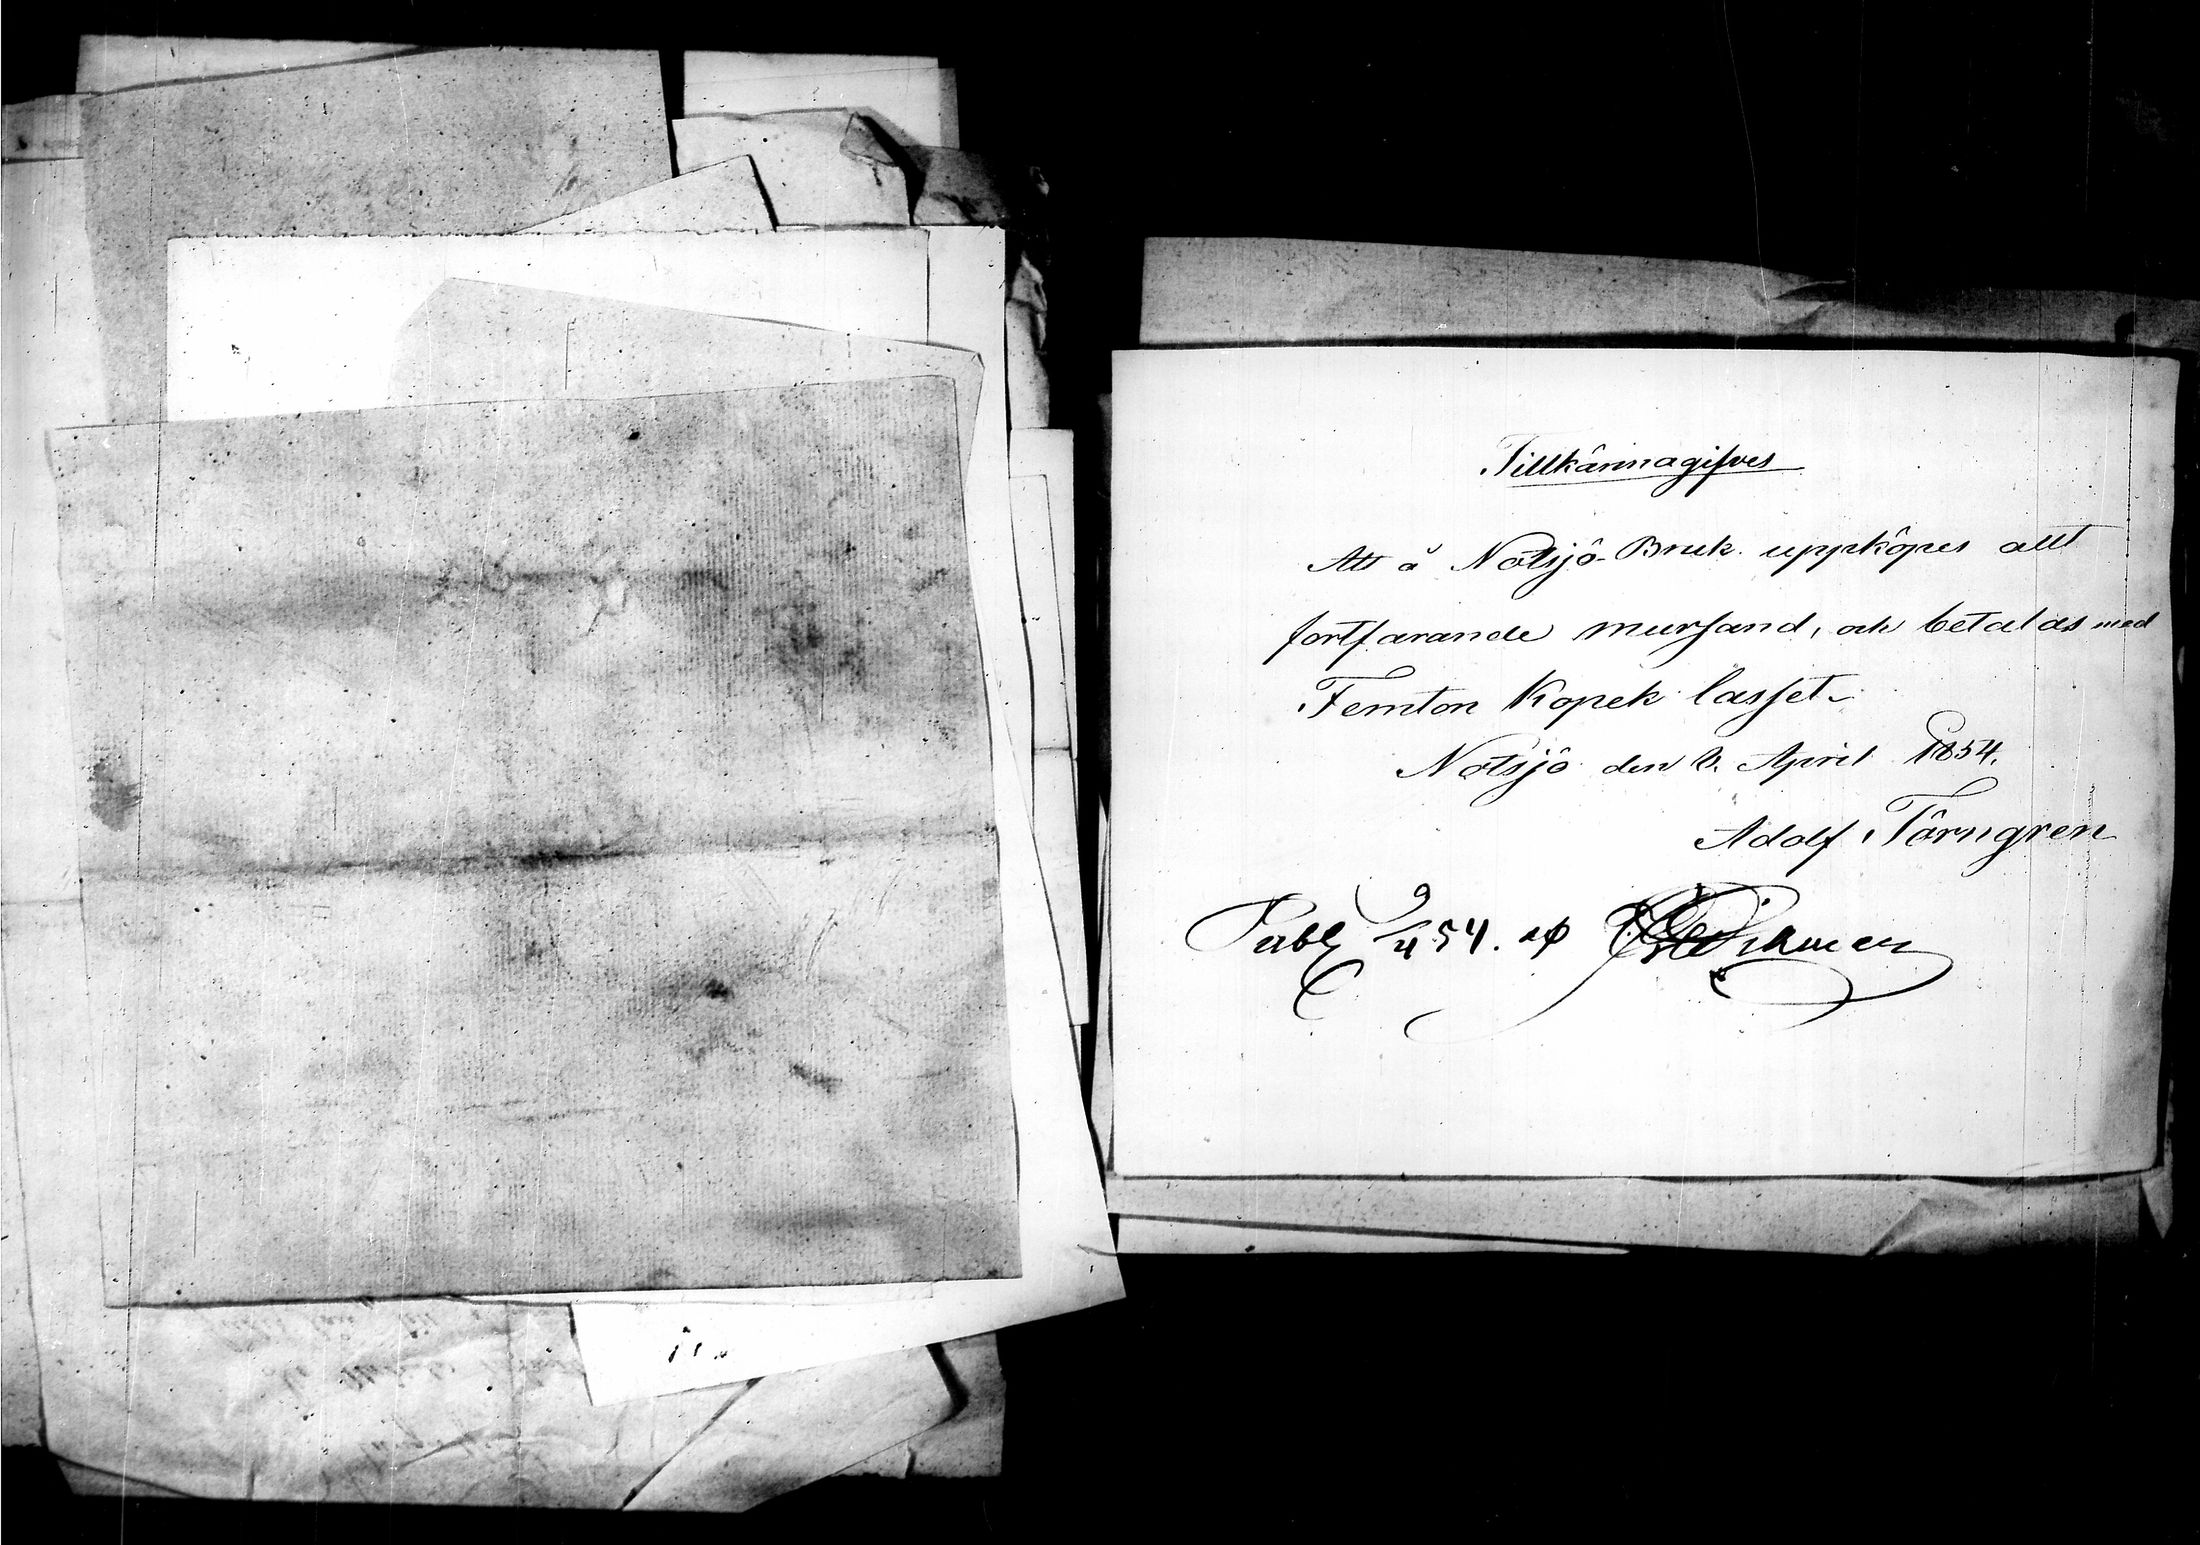 Tillkännagifves
Att å Notsjö Bruk uppköpes allt
fortfarande mursand, och betalas med
Femton Kopek lasset.
Notsjö den 8. April 1854.
Adolf Törngren
Publ 9/4 54. af